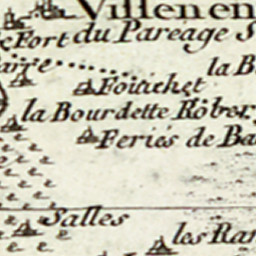 Villenen
Fort du Pareage S
la B
Fouichet
la Bourdette Rober
Feriés de Ba
Salles
les Ran